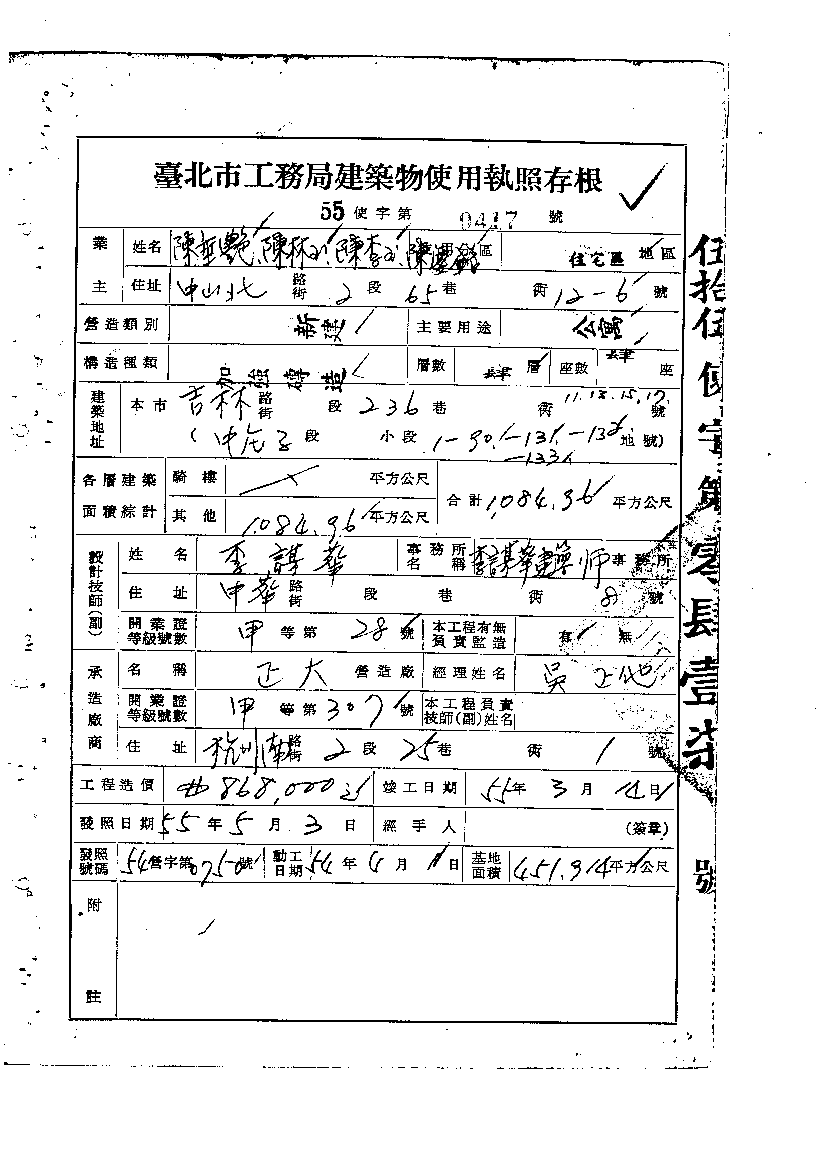 臺北市工務局建築物使用執照存根
55使字第0417號
業主 姓名 陳 陳林 陳李 陳 區 住宅區 地區
住址 中山北路街2段65巷 衖12-6號
營造類別 新建 主要用途 公寓
構造種類 加強磚造 層數 肆層 座數 肆座
建築地址 本市 吉林路街 段236巷 衖11.13.15.17.號
( 段 小段1-90.-131.-132地號)
-133
各層建築面積綜計 騎樓 平方公尺 合計1,084.96平方公尺
其他 1,084.96平方公尺
設計技師(副) 姓名 李謀華 事務所名稱 李謀華建築師事務所
住址 中華路街 段 巷 衖 8號
開業證等級號數 甲等第28號 本工程有無負責監造 有 無
承造廠商 名稱 正大營造廠 經理姓名 吳正
開業證等級號數 甲等第307號 本工程負責技師(副)姓名
住址 杭州南路街2段25巷 衖1號
工程造價 868,000 竣工日期 55年3月14日
發照日期 55年5月3日 經手人 (簽章)
發照號碼 54營字第0750號 動工日期 54年4月1日 基地面積 451.914平方公尺
附註
伍拾伍使字第零肆壹柒號